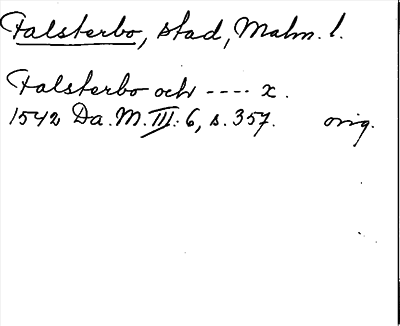 Falsterbo, stad, Malm. l.
Falsterbo och ---- x.
1542 Da. M. III: 6, s. 357. orig.